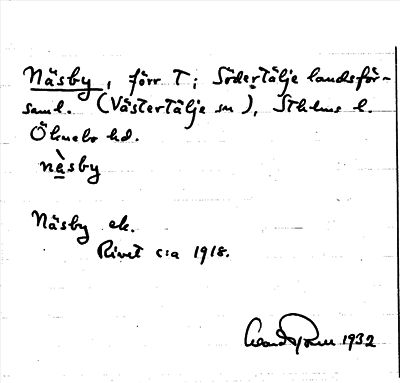 Näsby, förr T; Södertälje landsför-
saml. (Västertälje sn), Sthlms l.
Öknebo hd.
nà̱sby
Näsby ek.
Rivet c:a 1918.
1932